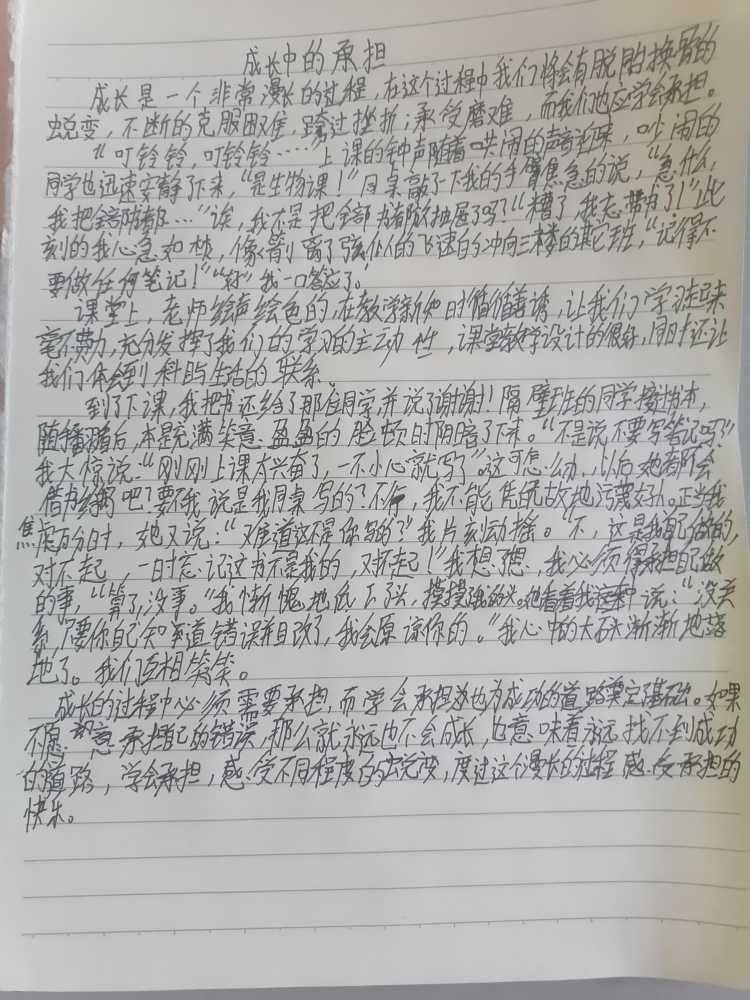 成长中的承担
成长是一个非常漫长的过程，在这个过程中我们将会有脱胎换骨的
蜕变，不断的克服困难，跨过挫折；承受磨难，而我们也应学会承担。
“叮铃铃，叮铃铃……”上课的钟声随着哄闹的声音，吵闹的
同学也迅速安静了下来，“是生物课！”同桌敲了一下我的手臂焦急的说，“急什么，
我把全部书都…”诶，我不是把全部书都放抽屉了吗？“糟了，我忘带书了！”此
刻的我心急如焚，像箭离了弦似的飞速的冲向三楼的其它班，“记得不
要做任何笔记！”“好”我一口答应了。
课堂上，老师绘声绘色的，在教学新知时循循善诱，让我们学习起来
毫不费力，充分发挥了我们的学习的主动性，课堂教学设计的很好，同时还让
我们体会到科学与生活的联系。
到了下课，我把书还给了那位同学，并说了谢谢！隔壁班的同学接过书本，
随翻后，本是充满笑意盈盈的脸顿时阴暗了下来。“不是说不要写笔记吗？”
我大惊说：“刚刚上课太兴奋了，一不小心就写了”这可怎么办，以后她都不会
借书给我了吧？要不我说是我同桌写的？不行，我不能凭白无故地污蔑好人。正当我
焦虑万分时，她又说：“难道这不是你写的？”我片刻动摇。“不，这是我自己做的，
对不起，一时忘记这书不是我的，对不起！”我想了想，我必须得承担自己做
的事，“算了，没事。”我惭愧地低下了头，摸摸我的头，她看着我说：“没关
系，只要你自己知道错误并且改了，我会原谅你的。”我心中的大石头渐渐地落
地了。我们互相笑笑。
成长的过程中必须需要承担，而学会承担也为成功的道路奠定了基础。如果
不愿意承担自己的错误，那么就永远也不会成长，也意味着永远找不到成功
的道路，学会承担，感受不同程度的蜕变，度过这个漫长的过程感受承担的
快乐。